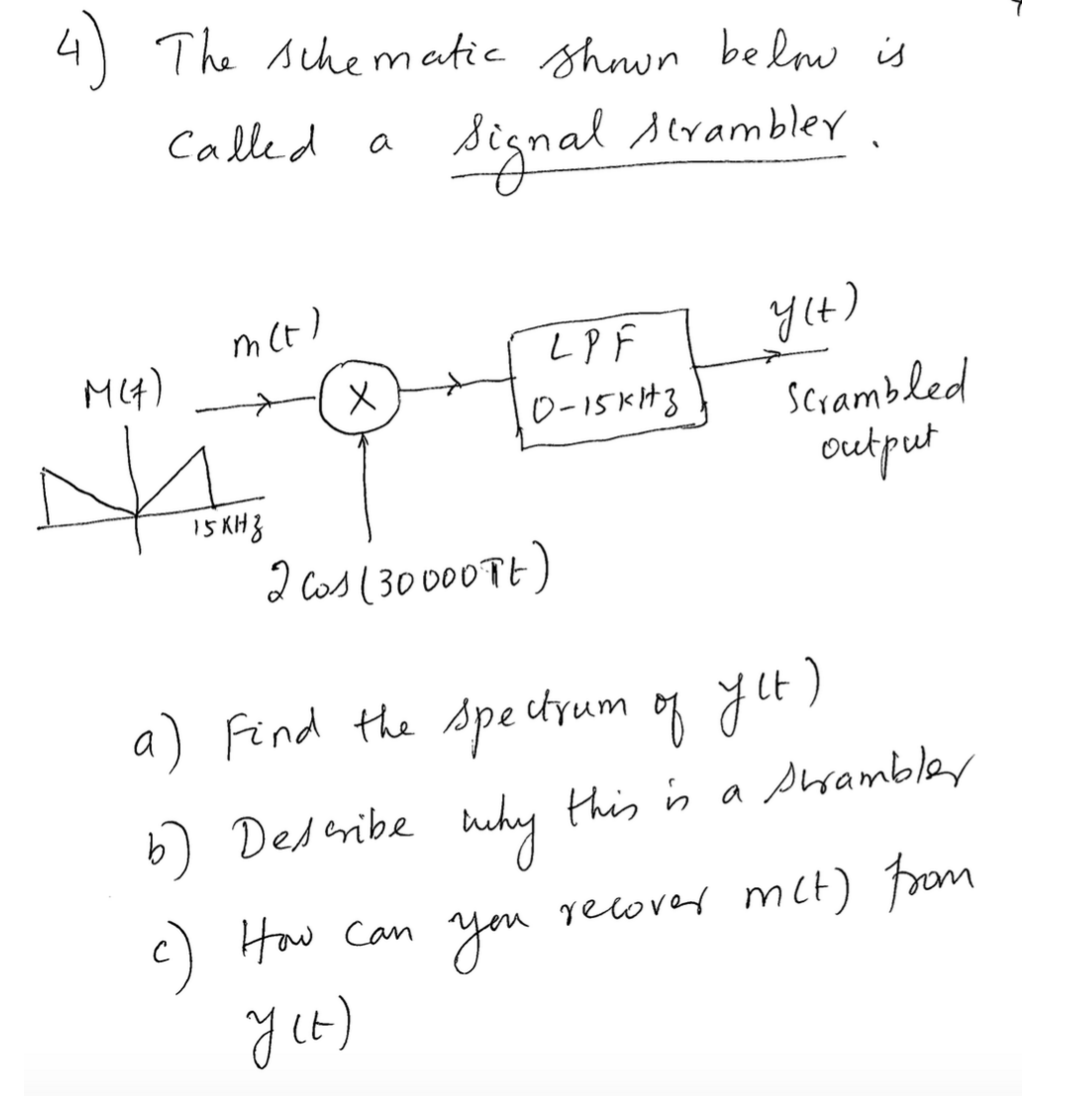 4) The schematic shown below is
called a signal scrambler.
m(t)
LPF
y(t)
M(f)
X
0-15KHz
Scrambled
output
15 KHz
2 cos (30000πt)
a) Find the spectrum of y(t)
b) Describe why this is a scrambler
c) How can you recover m(t) from
y(t)